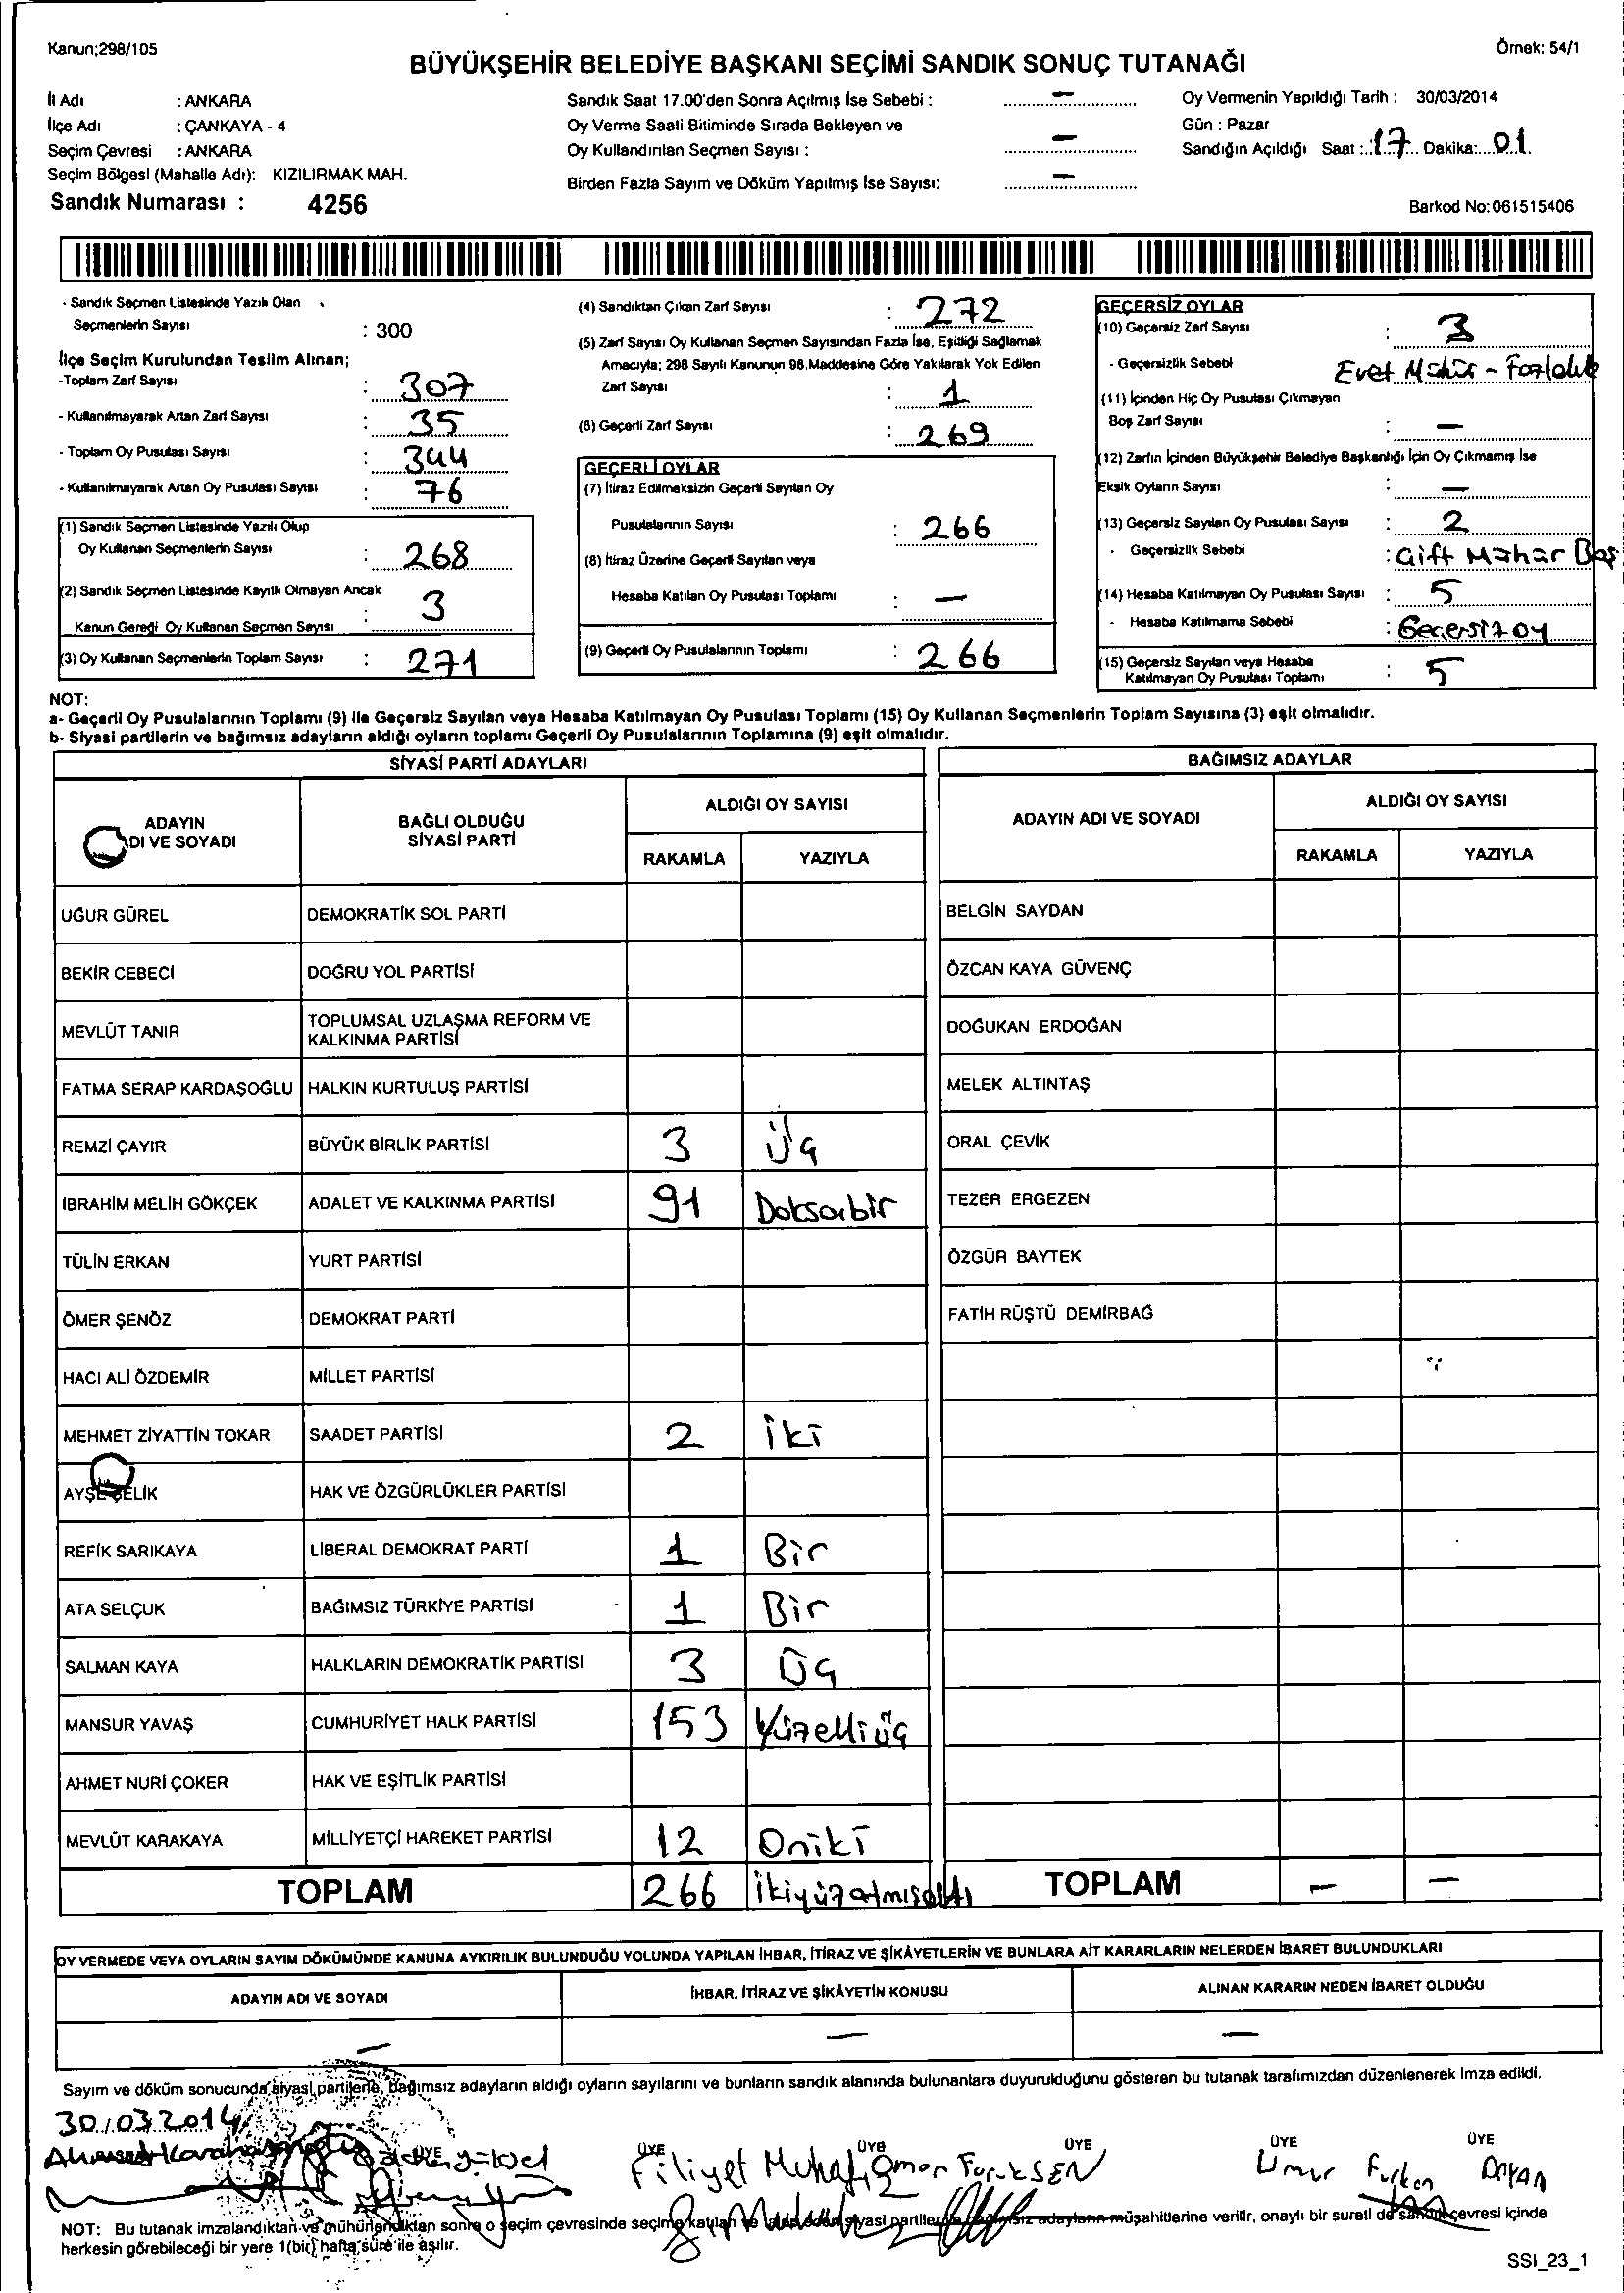 Kanun;298/105
Örnek: 54/1
BÜYÜKŞEHİR BELEDİYE BAŞKANI SEÇİMİ SANDIK SONUÇ TUTANAĞI
İl Adı : ANKARA
İlçe Adı : ÇANKAYA - 4
Seçim Çevresi : ANKARA
Seçim Bölgesi (Mahalle Adı): KIZILIRMAK MAH.
Sandık Numarası : 4256
Sandık Saat 17.00'den Sonra Açılmış İse Sebebi : –
Oy Verme Saati Bitiminde Sırada Bekleyen ve
Oy Kullandırılan Seçmen Sayısı : –
Birden Fazla Sayım ve Döküm Yapılmış İse Sayısı: –
Oy Vermenin Yapıldığı Tarih : 30/03/2014
Gün : Pazar
Sandığın Açıldığı Saat : 17 Dakika: 01
Barkod No:061515406
- Sandık Seçmen Listesinde Yazılı Olan
Seçmenlerin Sayısı : 300
İlçe Seçim Kurulundan Teslim Alınan;
-Toplam Zarf Sayısı : 307
- Kullanılmayarak Artan Zarf Sayısı : 35
- Toplam Oy Pusulası Sayısı : 344
- Kullanılmayarak Artan Oy Pusulası Sayısı : 76
(1) Sandık Seçmen Listesinde Yazılı Olup
Oy Kullanan Seçmenlerin Sayısı : 268
(2) Sandık Seçmen Listesinde Kayıtlı Olmayan Ancak
Kanun Gereği Oy Kullanan Seçmen Sayısı : 3
(3) Oy Kullanan Seçmenlerin Toplam Sayısı : 271
(4) Sandıktan Çıkan Zarf Sayısı : 272
(5) Zarf Sayısı Oy Kullanan Seçmen Sayısından Fazla İse, Eşitliği Sağlamak
Amacıyla; 298 Sayılı Kanunun 98.Maddesine Göre Yakılarak Yok Edilen
Zarf Sayısı : 1
(6) Geçerli Zarf Sayısı : 269
GEÇERLİ OYLAR
(7) İtiraz Edilmeksizin Geçerli Sayılan Oy
Pusulalarının Sayısı : 266
(8) İtiraz Üzerine Geçerli Sayılan veya
Hesaba Katılan Oy Pusulası Toplamı : –
(9) Geçerli Oy Pusulalarının Toplamı : 266
GEÇERSİZ OYLAR
(10) Geçersiz Zarf Sayısı : 3
- Geçersizlik Sebebi : Evet Mühür - Fazlalık
(11) İçinden Hiç Oy Pusulası Çıkmayan
Boş Zarf Sayısı : –
(12) Zarfın İçinden Büyükşehir Belediye Başkanlığı İçin Oy Çıkmamış İse
Eksik Oyların Sayısı : –
(13) Geçersiz Sayılan Oy Pusulası Sayısı : 2
- Geçersizlik Sebebi : Çift Mühür Boş
(14) Hesaba Katılmayan Oy Pusulası Sayısı : 5
- Hesaba Katılmama Sebebi : Geçersiz oy
(15) Geçersiz Sayılan veya Hesaba
Katılmayan Oy Pusulası Toplamı : 5
NOT:
a- Geçerli Oy Pusulalarının Toplamı (9) ile Geçersiz Sayılan veya Hesaba Katılmayan Oy Pusulası Toplamı (15) Oy Kullanan Seçmenlerin Toplam Sayısına (3) eşit olmalıdır.
b- Siyasi partilerin ve bağımsız adayların aldığı oyların toplamı Geçerli Oy Pusulalarının Toplamına (9) eşit olmalıdır.
SİYASİ PARTİ ADAYLARI
ADAYIN ADI VE SOYADI BAĞLI OLDUĞU SİYASİ PARTİ ALDIĞI OY SAYISI
RAKAMLA YAZIYLA
UĞUR GÜREL DEMOKRATİK SOL PARTİ
BEKİR CEBECİ DOĞRU YOL PARTİSİ
MEVLÜT TANIR TOPLUMSAL UZLAŞMA REFORM VE KALKINMA PARTİSİ
FATMA SERAP KARDAŞOĞLU HALKIN KURTULUŞ PARTİSİ
REMZİ ÇAYIR BÜYÜK BİRLİK PARTİSİ 3 Üç
İBRAHİM MELİH GÖKÇEK ADALET VE KALKINMA PARTİSİ 91 Doksanbir
TÜLİN ERKAN YURT PARTİSİ
ÖMER ŞENÖZ DEMOKRAT PARTİ
HACI ALİ ÖZDEMİR MİLLET PARTİSİ
MEHMET ZİYATTİN TOKAR SAADET PARTİSİ 2 İki
AYŞE ÇELİK HAK VE ÖZGÜRLÜKLER PARTİSİ
REFİK SARIKAYA LİBERAL DEMOKRAT PARTİ 1 Bir
ATA SELÇUK BAĞIMSIZ TÜRKİYE PARTİSİ 1 Bir
SALMAN KAYA HALKLARIN DEMOKRATİK PARTİSİ 3 Üç
MANSUR YAVAŞ CUMHURİYET HALK PARTİSİ 153 Yüzelliüç
AHMET NURİ ÇOKER HAK VE EŞİTLİK PARTİSİ
MEVLÜT KARAKAYA MİLLİYETÇİ HAREKET PARTİSİ 12 Oniki
TOPLAM 266 İkiyüzatmışaltı
BAĞIMSIZ ADAYLAR
ADAYIN ADI VE SOYADI ALDIĞI OY SAYISI
RAKAMLA YAZIYLA
BELGİN SAYDAN
ÖZCAN KAYA GÜVENÇ
DOĞUKAN ERDOĞAN
MELEK ALTINTAŞ
ORAL ÇEVİK
TEZER ERGEZEN
ÖZGÜR BAYTEK
FATİH RÜŞTÜ DEMİRBAĞ
TOPLAM – –
OY VERMEDE VEYA OYLARIN SAYIM DÖKÜMÜNDE KANUNA AYKIRILIK BULUNDUĞU YOLUNDA YAPILAN İHBAR, İTİRAZ VE ŞİKÂYETLERİN VE BUNLARA AİT KARARLARIN NELERDEN İBARET BULUNDUKLARI
ADAYIN ADI VE SOYADI İHBAR, İTİRAZ VE ŞİKÂYETİN KONUSU ALINAN KARARIN NEDEN İBARET OLDUĞU
– – –
Sayım ve döküm sonucunda siyasi partilerle, bağımsız adayların aldığı oyların sayılarını ve bunların sandık alanında bulunanlara duyurukduğunu gösteren bu tutanak tarafımızdan düzenlenerek imza edildi.
30.03.2014
ÜYE ÜYE ÜYE ÜYE ÜYE ÜYE
Ömer Faruk ŞEN Umur Furkan
NOT: Bu tutanak imzalandıktan ve mühürlendikten sonra o seçim çevresinde seçime katılan siyasi partiler müşahitlerine verilir, onaylı bir sureti de sandık çevresi içinde
herkesin görebileceği bir yere 1(bir) hafta süre ile asılır.
SSI_23_1